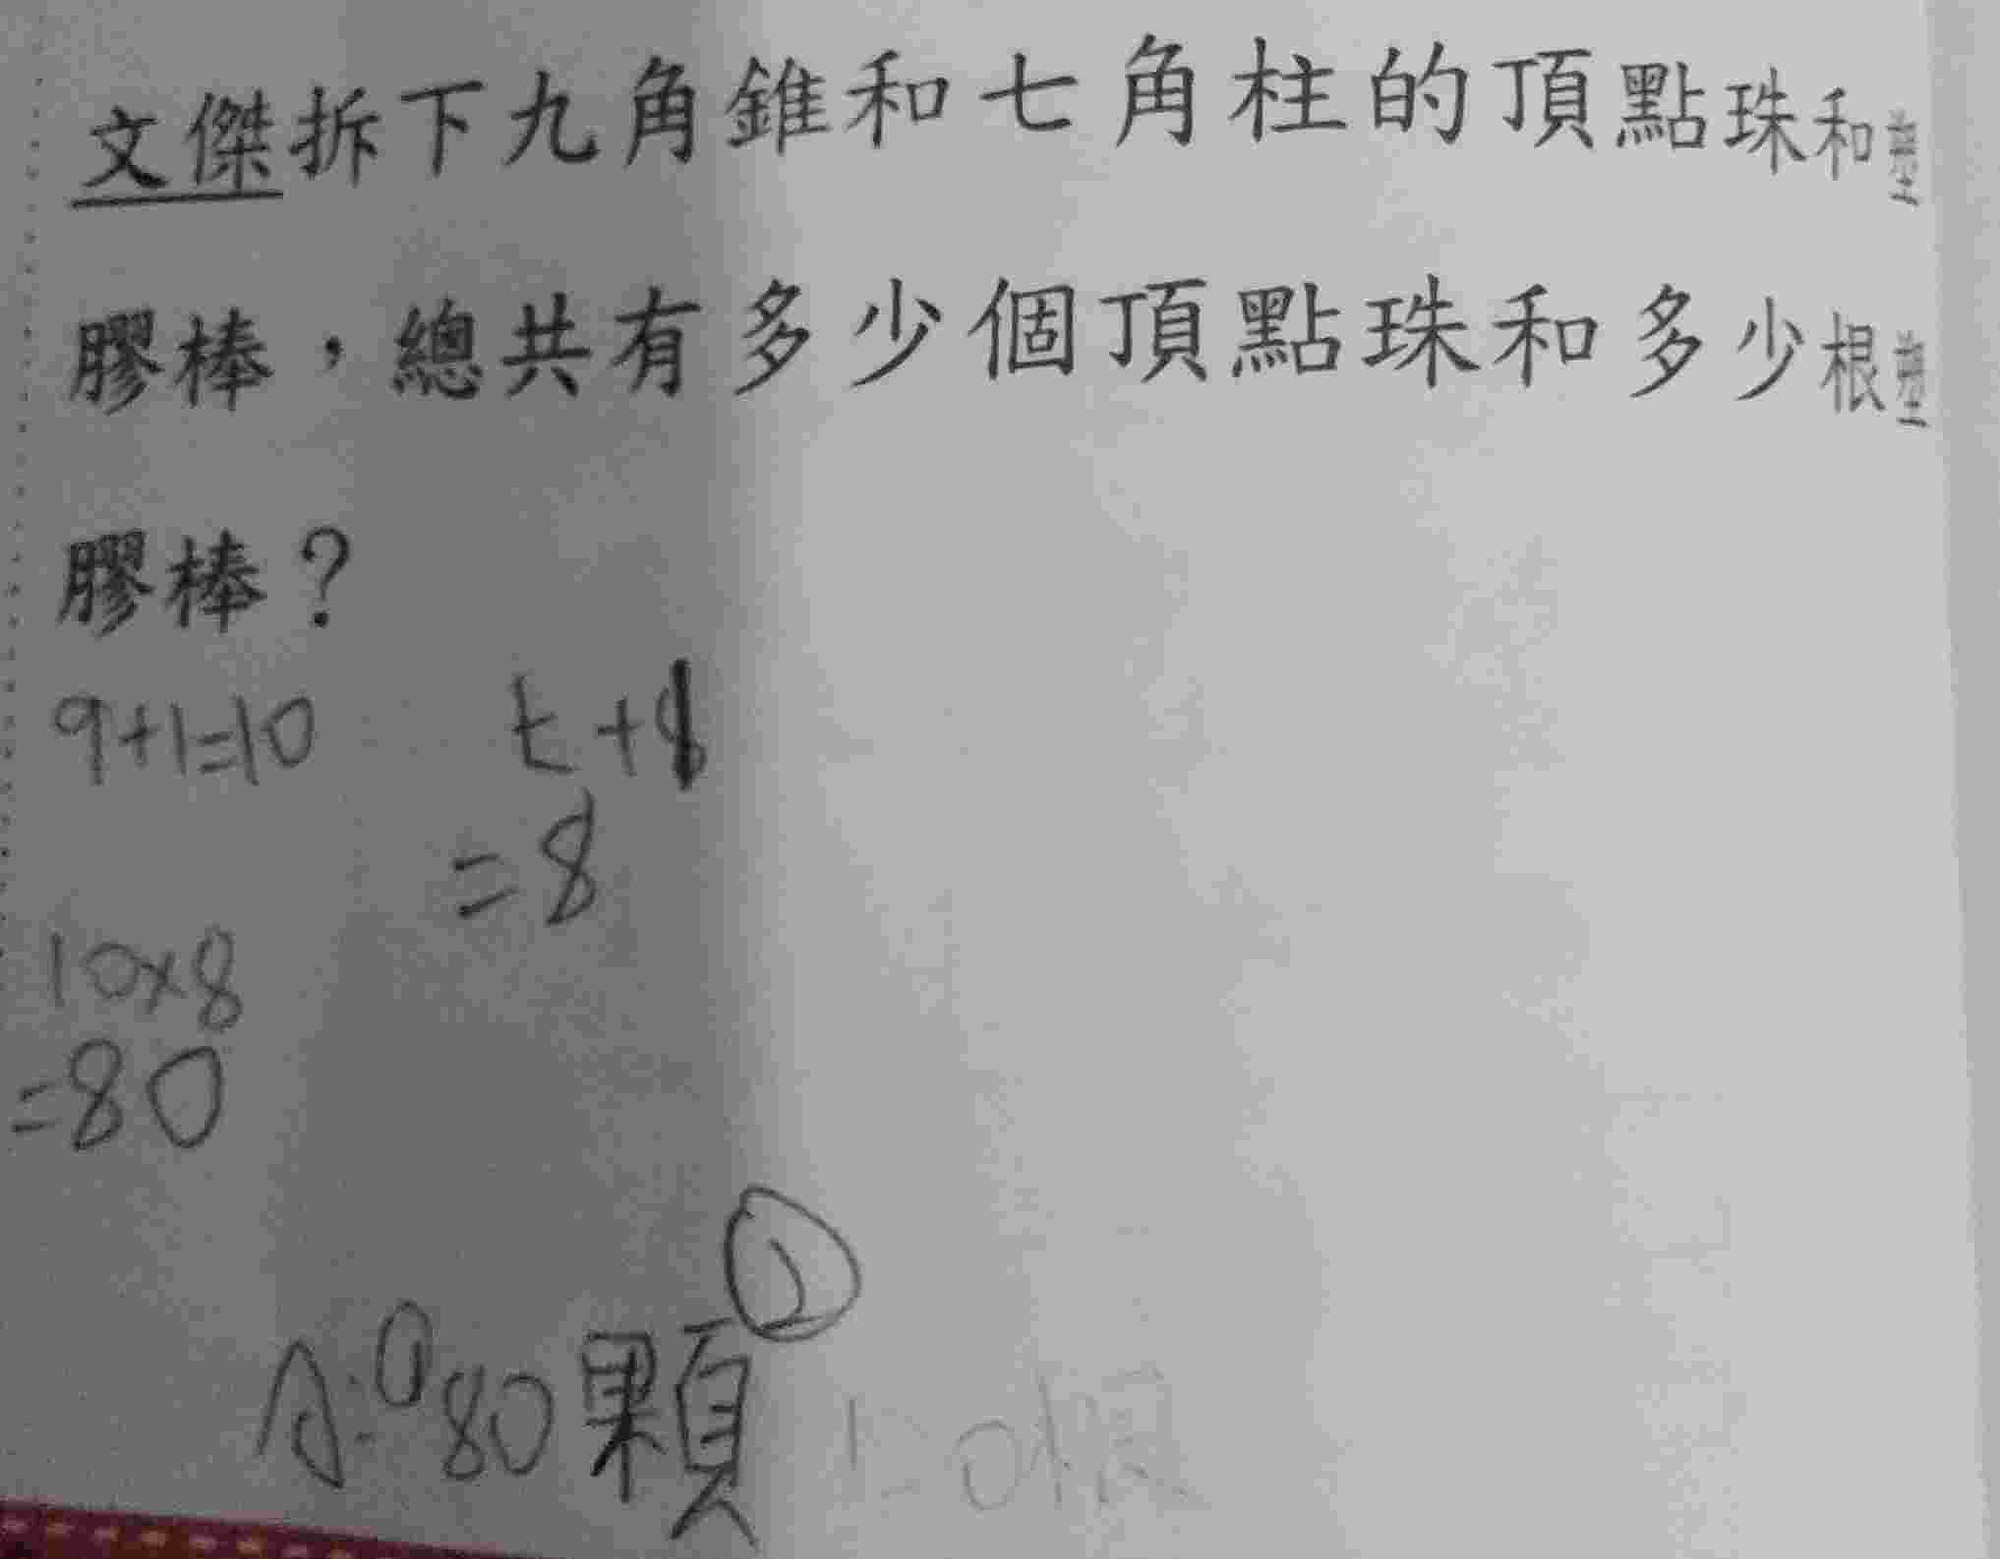 文傑拆下九角錐和七角柱的頂點珠和塑
膠棒，總共有多少個頂點珠和多少根塑
膠棒？
9+1=10 七+1
=8
10×8
=80
A:①80顆②